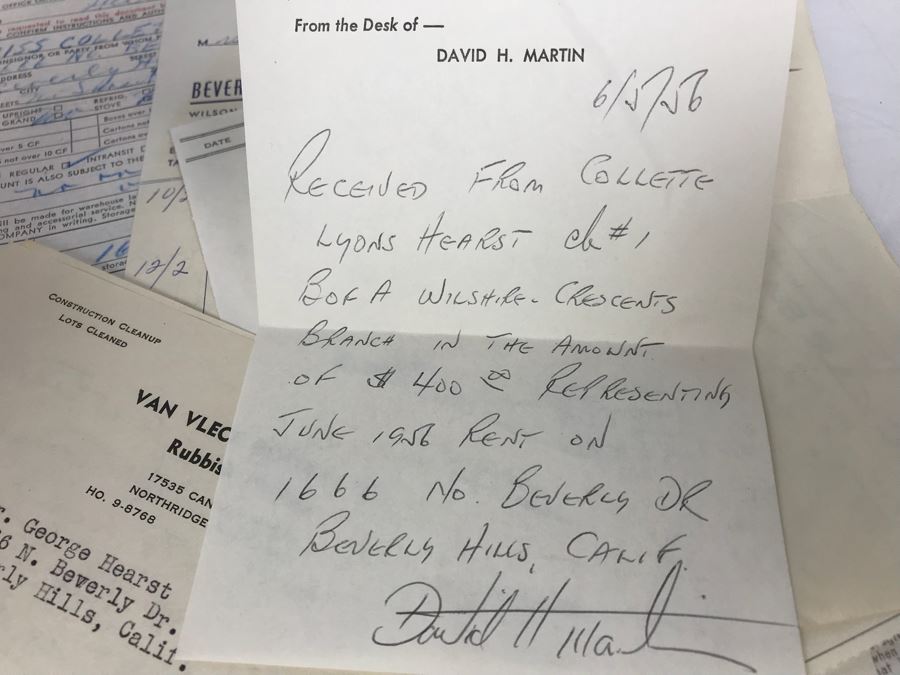 From the Desk of —
DAVID H. MARTIN
6/5/56
RECEIVED FROM COLLETTE
LYONS HEARST ck #1
B OF A WILSHIRE-CRESCENTS
BRANCH IN THE AMOUNT
OF $400 00 REPRESENTING
JUNE 1956 RENT ON
1666 No. BEVERLY DR
BEVERLY HILLS, CALIF.
David H Martin
CONSTRUCTION CLEANUP
LOTS CLEANED
VAN VLEC
Rubbis
17535 CAN
NORTHRIDGE
HO. 9-8768
r. George Hearst
6 N. Beverly Dr.
rly Hills, Calif.
requested to read this document
CONFIRM INSTRUCTIONS AND AUTH
ISS COLLE
ONSIGNOR OR PARTY FROM WHOM
STREET
ADDRESS
UPRIGHT
GRAND
REFRIG.
STOVE
Boxes over
Cartons not
ver 5 CF
not over 10 CF
Cartons
REGULAR
INTRANSIT
UNT IS ALSO SUBJECT TO THE
ill be made for warehouse la
ng and accessorial service.
COMPANY in writing. Storage
16
storag
M
BEVER
WILSON
DATE
TA
10/2
12/2
when
at